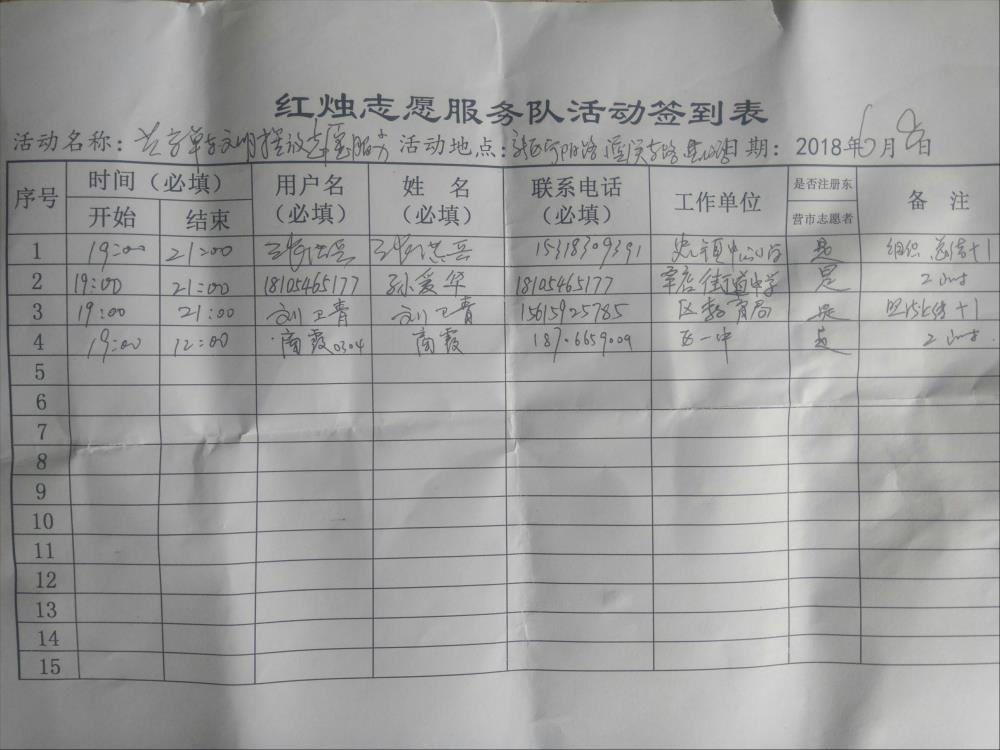 红烛志愿服务队活动签到表
活动名称：共享单车文明摆放志愿服务 活动地点： 日期： 2018年6月8日
序号 时间（必填） 用户名（必填） 姓 名（必填） 联系电话（必填） 工作单位 是否注册东营市志愿者 备 注
开始 结束
1 19:00 21:00 15318309391 是 组织
2 19:00 21:00 18105465177 孙爱华 18105465177 街道中学 是 2小时
3 19:00 21:00 刘卫青 刘卫青 15615925785 区教育局 是 +1
4 19:00 12:00 商霞0304 商霞 区一中 是 2小时
5
6
7
8
9
10
11
12
13
14
15